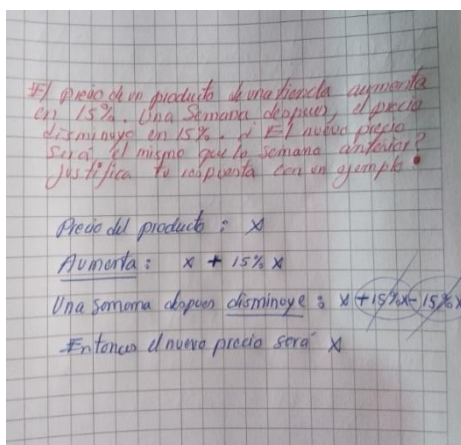 El precio de un producto de una tienda aumenta
en 15%. Una Semana despues, el precio
disminuye en 15%. ¿ El nuevo precio
Será el mismo que la semana anterior?
Justifica tu respuesta con un ejemplo.
Precio del producto : x
Aumenta : x + 15% x
Una semana despues disminuye : x +15%x-15%x
Entonces el nuevo precio será x